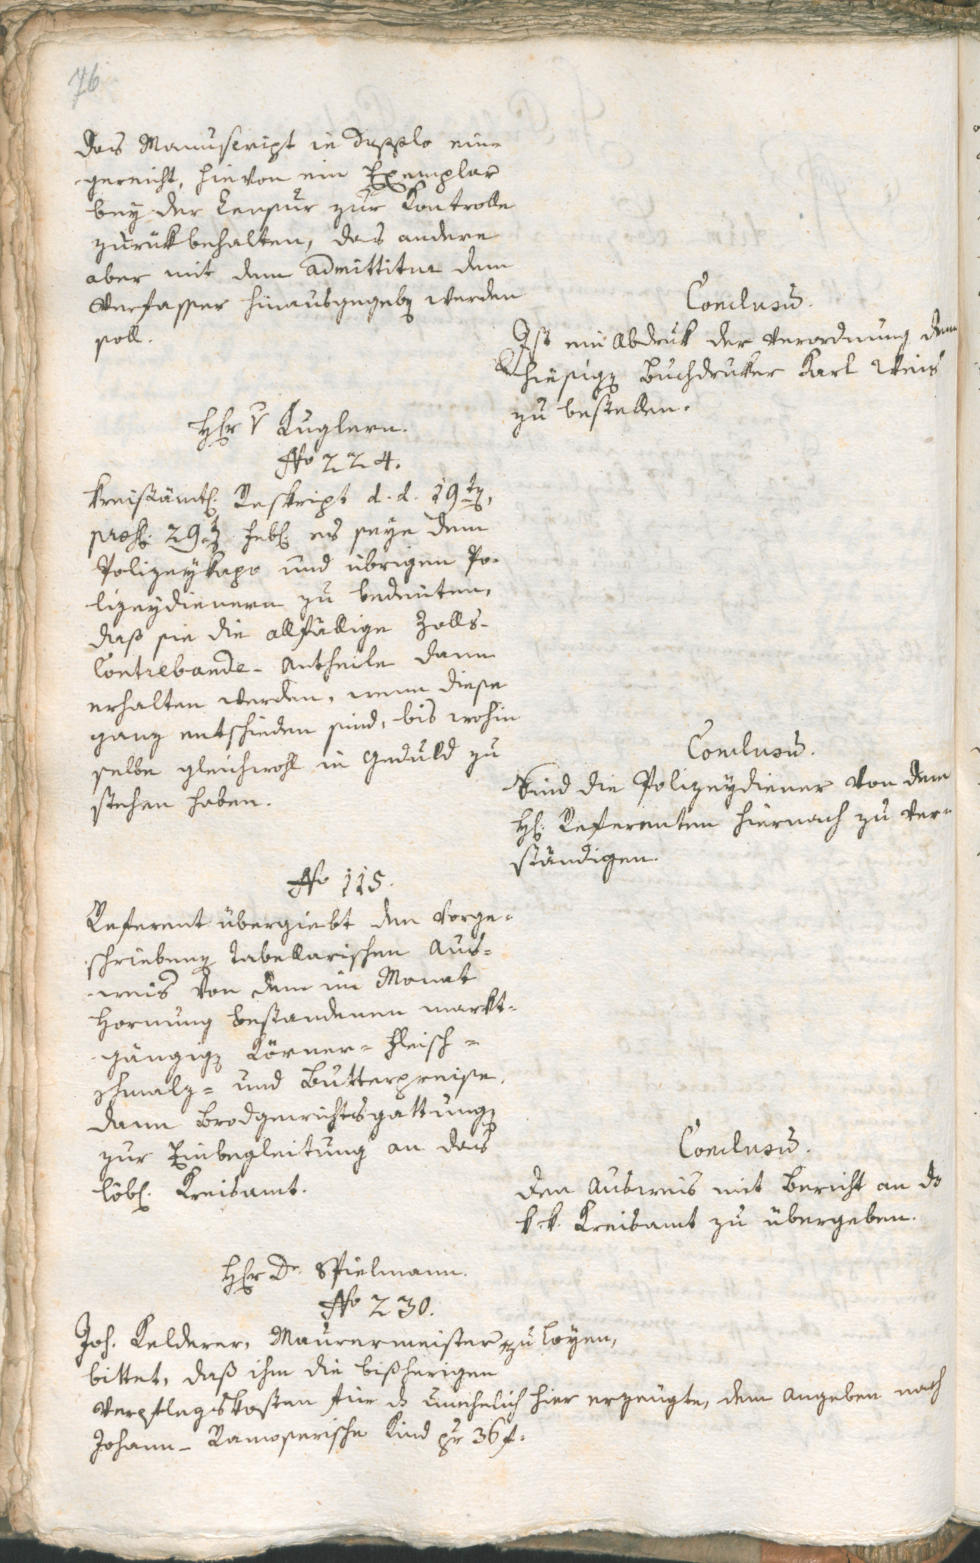 76
das Manuscript in Dupplo ein-
gereicht, hievon ein Exemplar
bey der Censur zur Kontrolle
zurükbehalten, das andere
aber mit dem admittitur dem
Verfasser hinausgegeben werden
soll.
Conclusum.
Ist ein Abdruk der Verordnung dem
hiesigen Buchdruker Karl Weis
zu bestellen.
Herr v Kuglern.
No 224.
Kreisämtl. Reskript d. d. 19ten,
præs. 29ten Febr. es seye dem
Polizeykapo und übrigen Po-
lizeydienern zu bedeuten,
daß sie die allfällige Zolls-
Contrebande-Antheile dann
erhalten werden, wenn diese
ganz entschieden sind, bis wohin
selbe gleichwohl in Geduld zu
stehen haben.
Conclusum.
Sind die Polizeydiener von dem
H. Referenten hiernach zu ver-
ständigen.
No 115.
Referent übergiebt den vorge-
schriebenen tabellarischen Aus-
weis von dem im Monat
Hornung bestandenen markt-
gängigen Körner- Fleisch-
schmalz- und Butterpreise,
dann Brodgewichtsgattungen
zur Einbegleitung an das
löbl. Kreisamt.
Conclusum.
Den Ausweis mit Bericht an das
k. k. Kreisamt zu übergeben.
Herr Dr. Spielmann.
No 230.
Joh. Kelderer, Maurermeister zu Loyen,
bittet, daß ihm die bißherigen
Verpflegskosten für das unehelich hier erzeugte, dem Angeben nach
Johann-Ramoserische Kind pr 36 f.